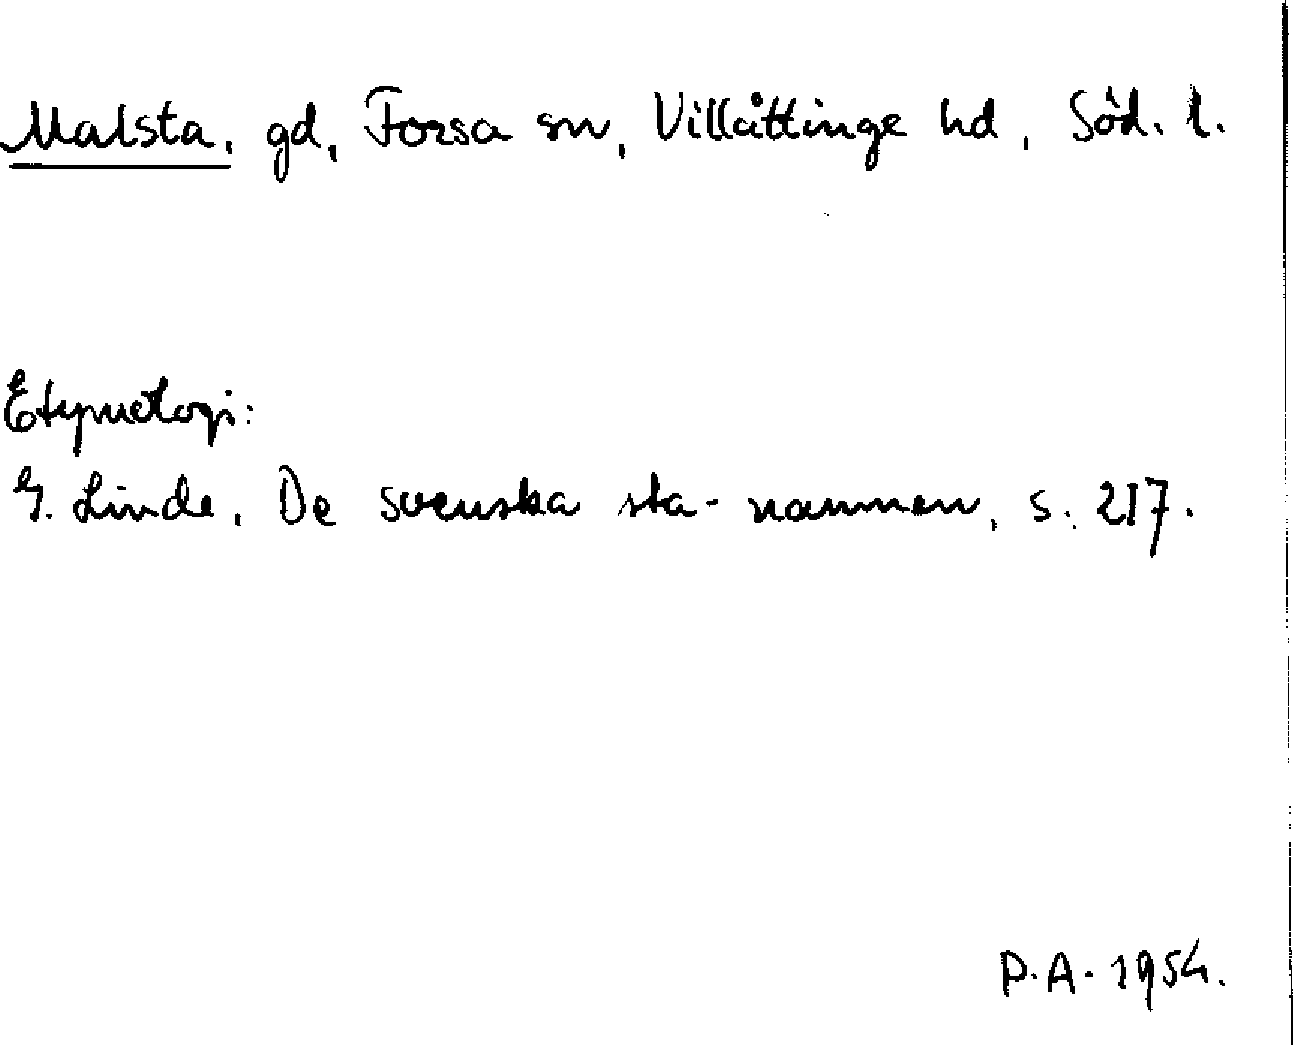 Malsta, gd, Forsa sn, Villåttinge hd, Söd. l.
Etymologi:
G. Linde, De svenska sta-namnen, s. 217.
P.A. 1954.